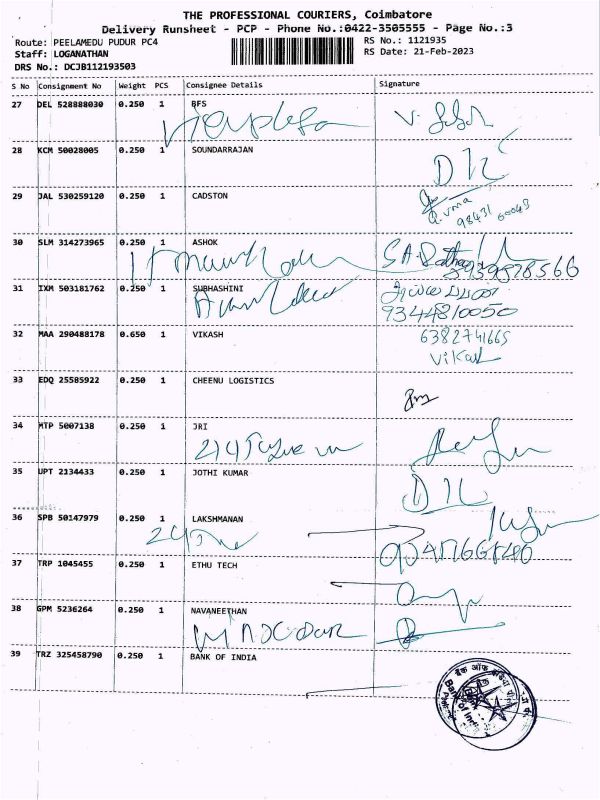 THE PROFESSIONAL COURIERS, Coimbatore
Delivery Runsheet - PCP - Phone No.:0422-3505555 - Page No.:3
Route: PEELAMEDU PUDUR PC4
RS No.: 1121935
Staff: LOGANATHAN
RS Date: 21-Feb-2023
DRS No.: DCJB112193503
S No Consignment No Weight PCS Consignee Details Signature
27 DEL 528888030 0.250 1 BFS
28 KCM 50028005 0.250 1 SOUNDARRAJAN
29 JAL 530259120 0.250 1 CADSTON
98431 60043
30 SLM 314273965 0.250 1 ASHOK
31 IXM 503181762 0.250 1 SUBHASHINI
9344810050
32 MAA 290488178 0.650 1 VIKASH
6382741665
Vikash
33 EDQ 25585922 0.250 1 CHEENU LOGISTICS
34 MTP 5007138 0.250 1 JRI
35 UPT 2134433 0.250 1 JOTHI KUMAR
36 SPB 50147979 0.250 1 LAKSHMANAN
37 TRP 1045455 0.250 1 ETHU TECH
38 GPM 5236264 0.250 1 NAVANEETHAN
39 TRZ 325458790 0.250 1 BANK OF INDIA
बैंक ऑफ इंडिया
Bank of India